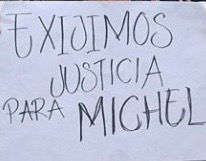 EXIJIMOS
JUSTICIA
PARA MICHEL